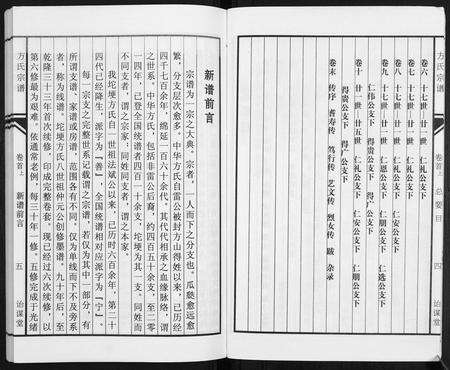 方氏宗谱
卷首上
总要目
四
诒谋堂
卷六 十七世—廿一世 仁礼公支下
卷七 十七世—廿一世 仁礼公支下
卷八 十七世—廿一世 仁礼公支下 仁安公支下
卷九 十七世—廿一世 仁恩公支下 仁朋公支下 仁选公支下
仁伟公支下 得贵公支下 得广公支下
卷十 廿一世—廿五世 仁礼公支下 仁安公支下 仁朋公支下
得贵公支下 得广公支下
卷末 传序 耆寿传 笃行传 艺文传 烈女传 跋 杂录
新谱前言
宗谱为一宗之大典。宗者，一人而下之分支也。瓜瓞愈远愈
繁，分支层次愈多。中华方氏自雷公被封方山得姓以来，已历经
四千七百余年，绵延一百六十余代。其代代相承之血缘脉络，谓
之世系。中华方氏，包括非雷公后裔，约四百五十余支，至二零
一四年，已登全国统谱者四百一十余支。坨埂为其一支。同姓
不同支者，谓之宗家；同姓同支者，谓之本家。
我坨埂方氏自一世祖法斌公以来，已历时六百余年，第二十
四代已经降生，我支派字为「善」，全国统谱相对应派字为「宁」。
每一宗支之完整世系记载谓之宗谱，若仅为其中一部分，有
所谓支谱、家谱或房谱，范围各有不同。仅为单线而下不及旁系
者，称为线谱。坨埂方氏八世祖仲元公创修墨谱。九十年后，至
乾隆三十三年首次续修，印成完整卷套。现已经过六次续修，以
第六修最为艰难。依通常老例，每三十年一修。五修完成于光绪
方氏宗谱
卷首上
新谱前言
五
诒谋堂